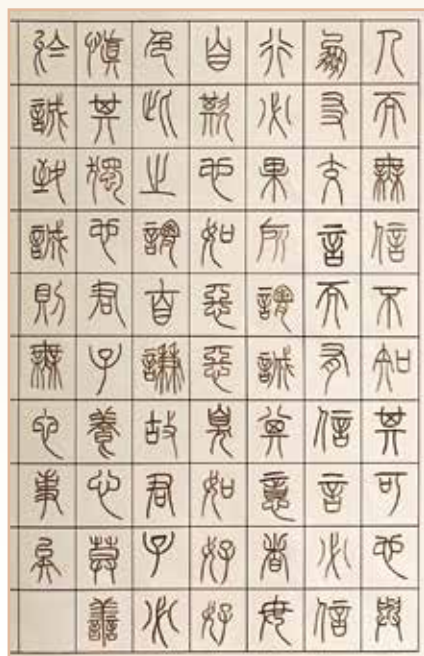 人而無信不知其可也與
朋友交言而有信言必信
行必果所謂誠其意者毋
自欺也如惡惡臭如好好
色此之謂自謙故君子必
慎其獨也君子養心莫善
於誠致誠則無它事矣